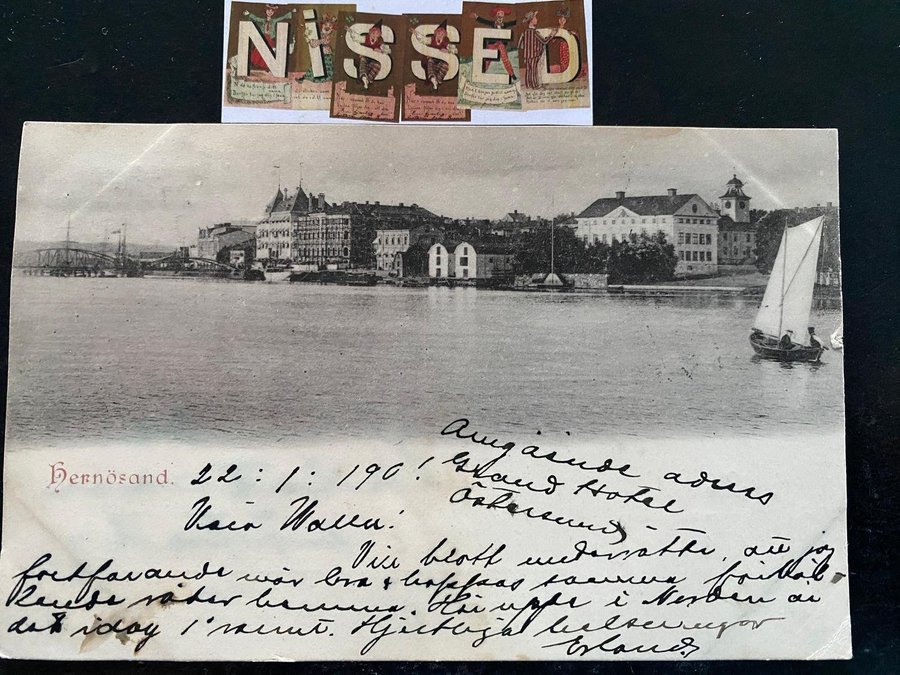 NISSED
Hernösand.
22 : 1 : 190!
Omgående adress
Grand Hotel
Östersund
Kära
Vill blott underrätta, att jag
fortfarande mår bra & hoppas samma förhål
lande råder hemma. Här uppe i Norden är
det idag 1° varmt. Hjertliga helsningar
Erland